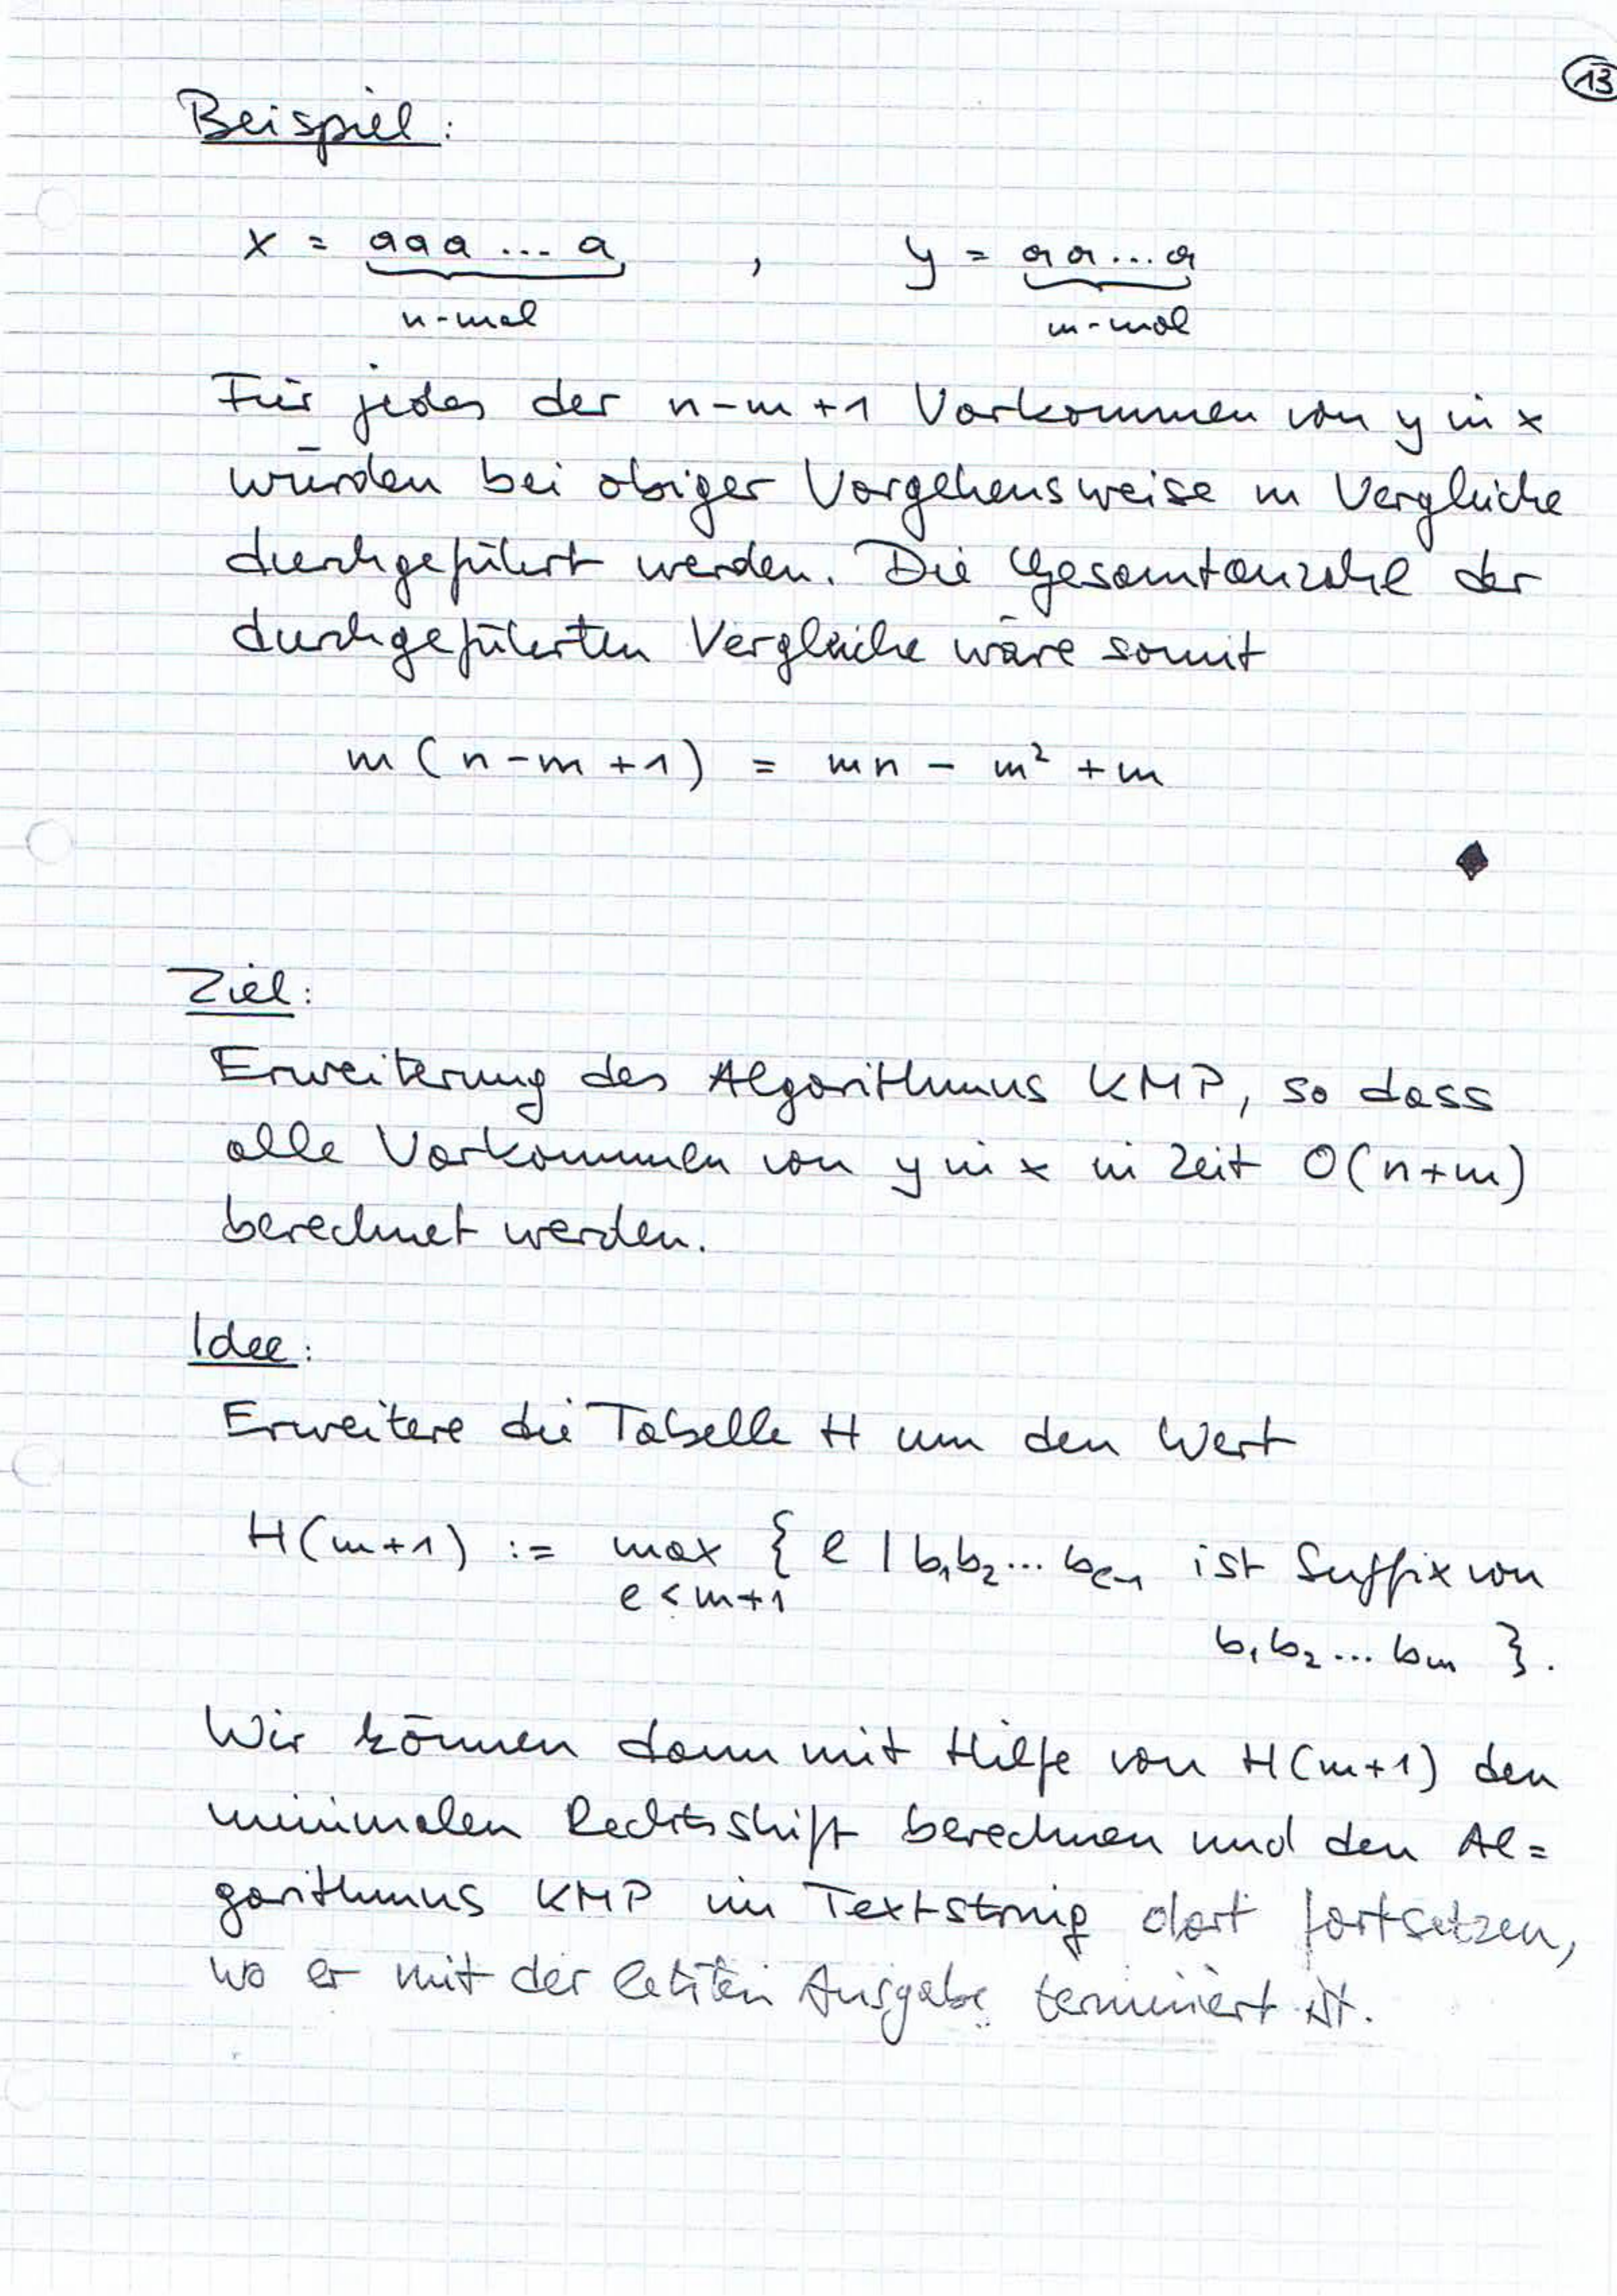 13
Beispiel:
x = aaa ... a , y = aa...a
n-mal m-mal
Für jedes der n-m+1 Vorkommen von y in x
würden bei obiger Vorgehensweise m Vergleiche
durchgeführt werden. Die Gesamtanzahl der
durchgeführten Vergleiche wäre somit
m (n-m+1) = mn - m² + m
Ziel:
Erweiterung des Algorithmus KMP, so dass
alle Vorkommen von y in x in Zeit O(n+m)
berechnet werden.
Idee:
Erweitere die Tabelle H um den Wert
H(m+1) := max { l | b₁b₂...bₗ₋₁ ist Suffix von
l < m+1
b₁b₂...bₘ }.
Wir können dann mit Hilfe von H(m+1) den
minimalen Rechtsshift berechnen und den Al=
gorithmus KMP im Textstring dort fortsetzen,
wo er mit der letzten Ausgabe terminiert ist.